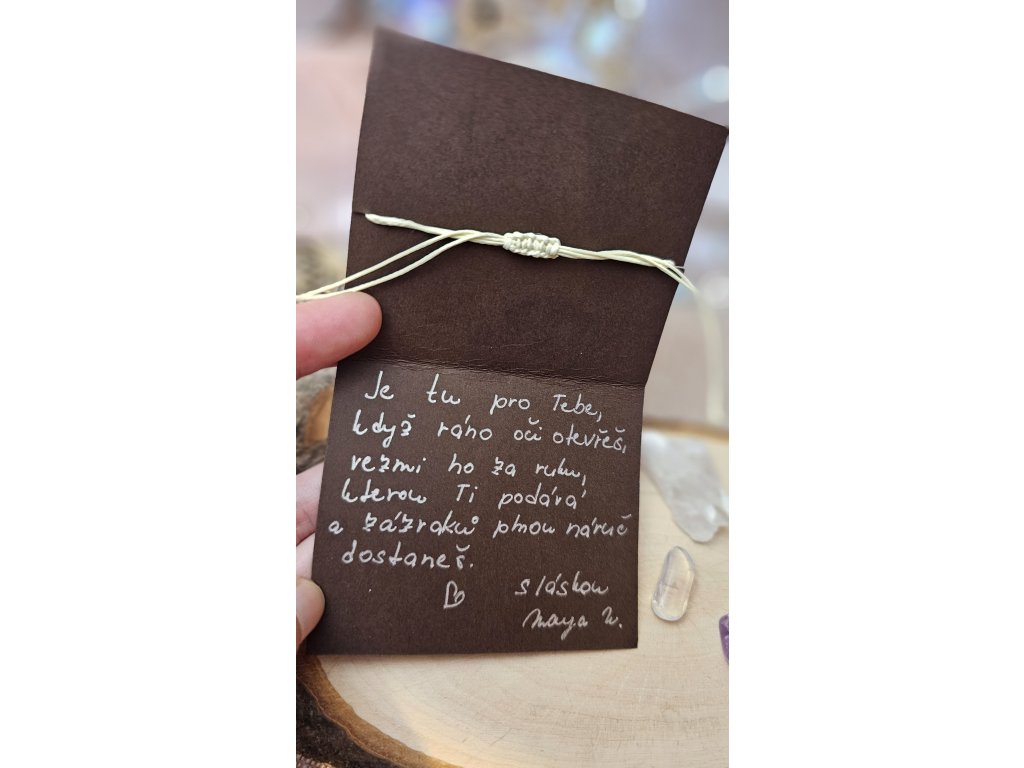 Je tu pro Tebe,
když ráno oči otevřeš,
vezmi ho za ruku,
kterou Ti podává
a zázraků plnou náruč
dostaneš.
s láskou
Maya W.